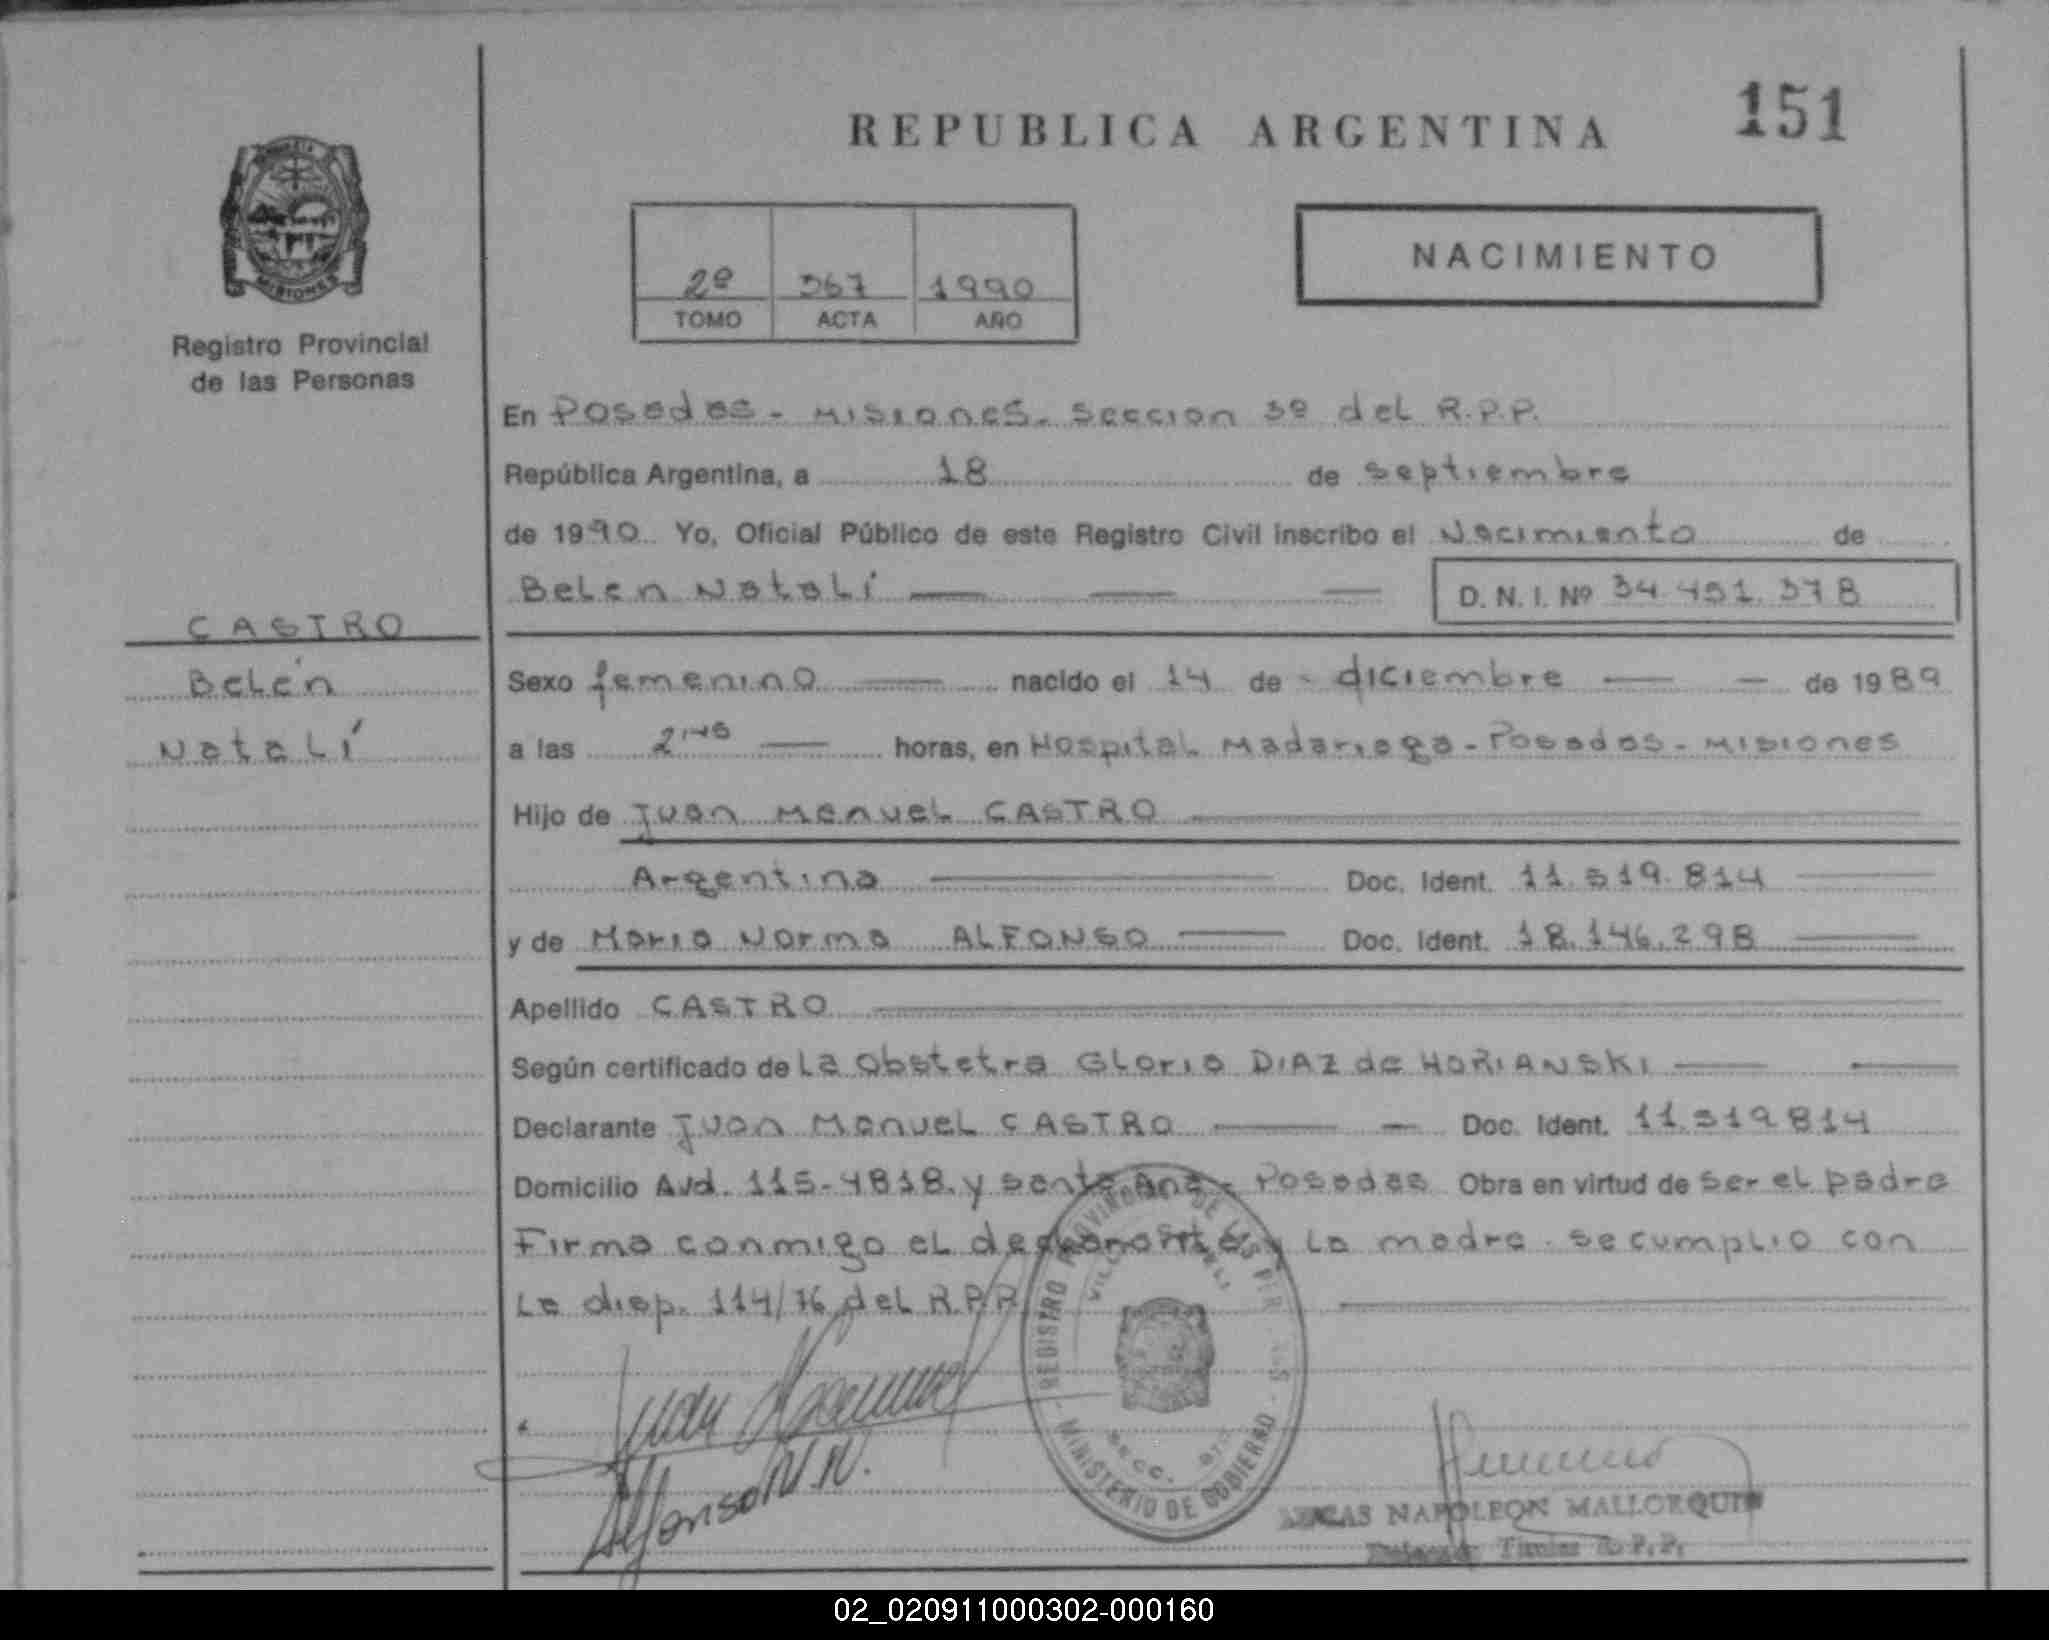 REPUBLICA ARGENTINA
151
PROVINCIA
MISIONES
Registro Provincial
de las Personas
2º 367 1990
TOMO ACTA AÑO
NACIMIENTO
En Posadas - Misiones. Seccion 3º del R.P.P.
República Argentina, a 18 de septiembre
de 1990 Yo, Oficial Público de este Registro Civil inscribo el Nacimiento de
Belen Natalí D. N. I. Nº 34.451.378
CASTRO
Belén
Natalí
Sexo femenino nacido el 14 de diciembre de 1989
a las 2,45 horas, en Hospital Madariaga - Posadas - Misiones
Hijo de Juan Manuel CASTRO
Argentina Doc. Ident. 11.519.814
y de Maria Norma ALFONSO Doc. Ident. 18.146.298
Apellido CASTRO
Según certificado de La obstetra Gloria DIAZ de HORIANSKI
Declarante Juan Manuel CASTRO Doc. Ident. 11.519814
Domicilio Avd. 115-4818. y santa Ana - Posadas Obra en virtud de ser el padre
Firma conmigo el declarante y La madre. se cumplio con
La disp. 114/76 del R.P.P.
REGISTRO PROVINCIAL DE LAS PERSONAS
SECC.
MINISTERIO DE GOBIERNO
Juan Manuel
Alfonso N.N.
LUCAS NAPOLEON MALLORQUIN
R.P.P.
02_020911000302-000160